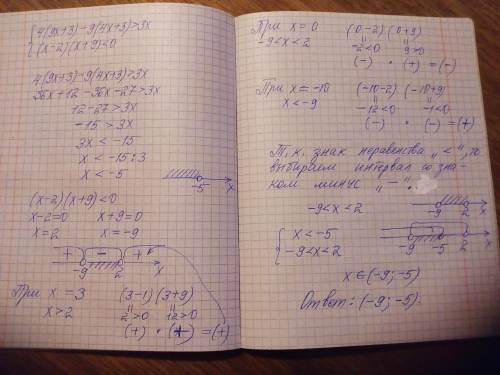 { 4(9x+3)-9(4x+3)>3x
(x-2)(x+9)<0
4(9x+3)-9(4x+3)>3x
36x+12-36x-27>3x
12-27>3x
-15>3x
3x<-15
x<-15:3
x<-5
-5 x
(x-2)(x+9)<0
x-2=0 x+9=0
x=2 x=-9
+ - +
-9 2 x
При x=3 (3-1)(3+9)
x>2 2>0 12>0
(+) · (+) =(+)
При x=0 (0-2)(0+9)
-9<x<2 -2<0 9>0
(-) · (+) =(-)
При x=-10 (-10-2)(-10+9)
x<-9 -12<0 -1<0
(-) · (-) =(+)
Т.к. знак неравенства „<“, то
выбираем интервал со зна-
ком минус „-“.
-9<x<2
-9 2 x
{ x<-5
-9<x<2
-9 -5 2 x
x∈(-9;-5)
Ответ: (-9;-5).